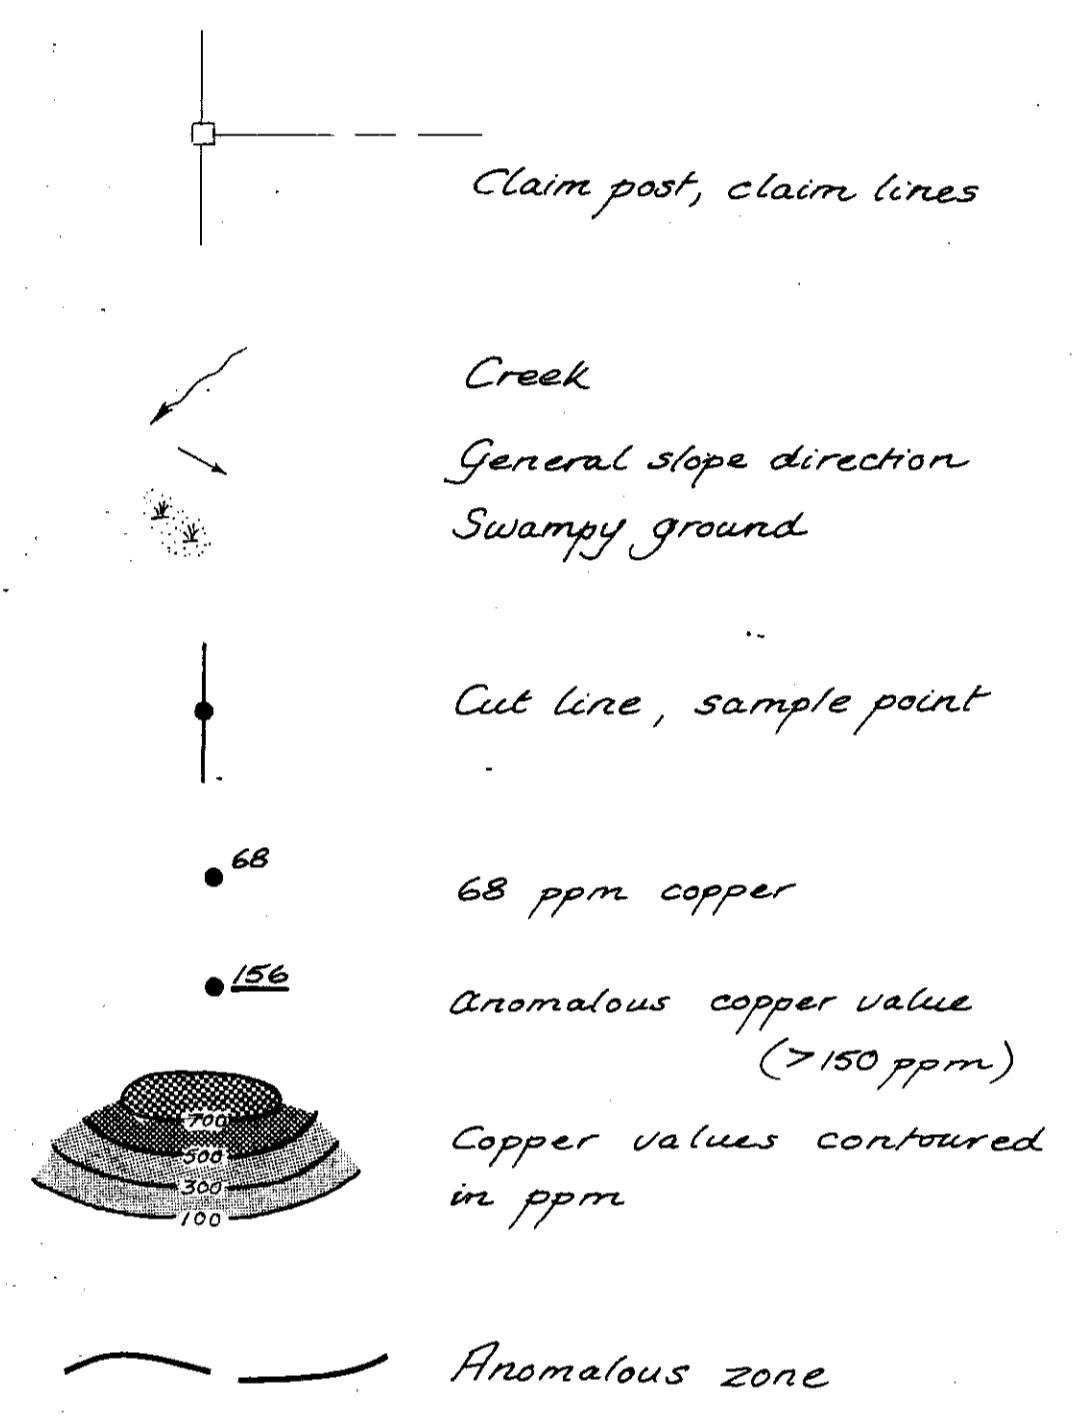 Claim post, claim lines
Creek
General slope direction
Swampy ground
Cut line, sample point
68
68 ppm copper
156
Anomalous copper value
(>150 ppm)
700
500
300
100
Copper values contoured
in ppm
Anomalous zone